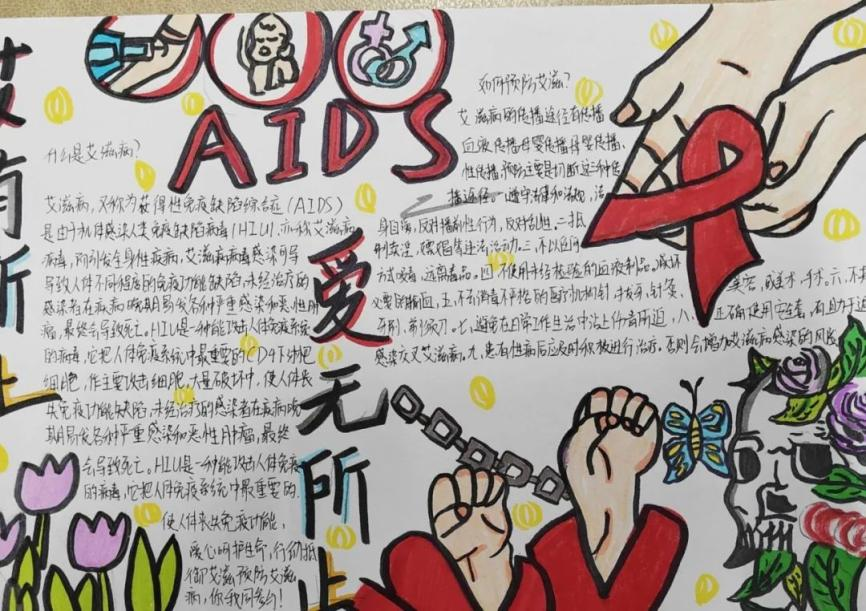 艾有所止
AIDS
什么是艾滋病?
艾滋病，又称为获得性免疫缺陷综合症(AIDS)
是由于机体感染人类免疫缺陷病毒(HIU)，亦称艾滋病
病毒，而引发全身性疾病，艾滋病病毒感染可导
导致人体不同程度的免疫功能缺陷，未经治疗的
感染者在疾病晚期易发各种严重感染和恶性肿
瘤，最终会导致死亡。HIU是一种能攻击人体免疫系统
的病毒，它把人体免疫系统中最重要的CD4T淋巴
细胞，作主要攻击细胞，大量破坏中，使人体长
失免疫功能缺陷，未经治疗的感染者在疾病晚
期易发各种严重感染和恶性肿瘤，最终
会导致死亡。HIU是一种能攻击人体免疫
的病毒，它把人体免疫系统中最重要的
使人体丧失免疫功能，
爱心呵护生命，行动抵
御艾滋预防艾滋
病，你我同参与!
爱无所止
如何预防艾滋?
艾滋病的传播途径有传播
血液传播母婴传播母婴传播、
性传播，预防主要是切断这三种传
播途径。一、遵守法律和法规，洁
身自爱，反对婚前性行为，反对乱性。二、抵
制卖淫，嫖娼等违法活动。三、不以任何
方式吸毒，远离毒品。四、不使用未经检验的血液制品。减坏
必要的输血，五、不去消毒不严格的医疗机构打针，拔牙，针灸、
美容，或手术。六、不
牙刷，剃须刀。七、避免在日常工作生活中沾上伤者血迹，八、正确使用安全套，有助于
感染及艾滋病。九、患有性病后应及时积极进行治疗，否则会增加艾滋病感染的风险